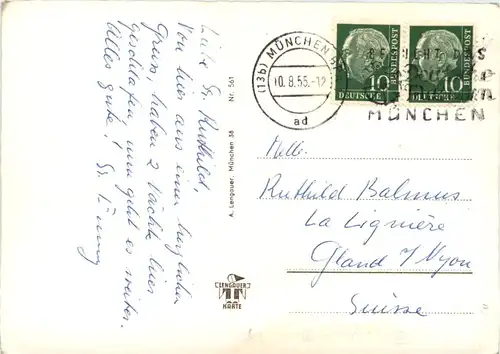 Liebe Sr. Ruthild,
Von hier aus einen herzlichen
Gruss, haben 2 Nächte hier
geschlafen nun geht es weiter.
Alles gute! Sr.
A. Lengauer, München 38 Nr. 561
LENGAUER
KARTE
(13b) MÜNCHEN
8.55.-12
ad
DEUTSCHE BUNDESPOST 10
DEUTSCHE BUNDESPOST 10
MÜNCHEN
Melle.
Ruthild Balmus
La Lignière
Gland s/ Nyon
Suisse